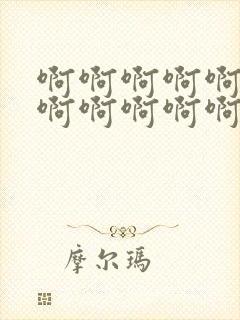 啊啊啊啊啊
啊啊啊啊啊
摩尔玛